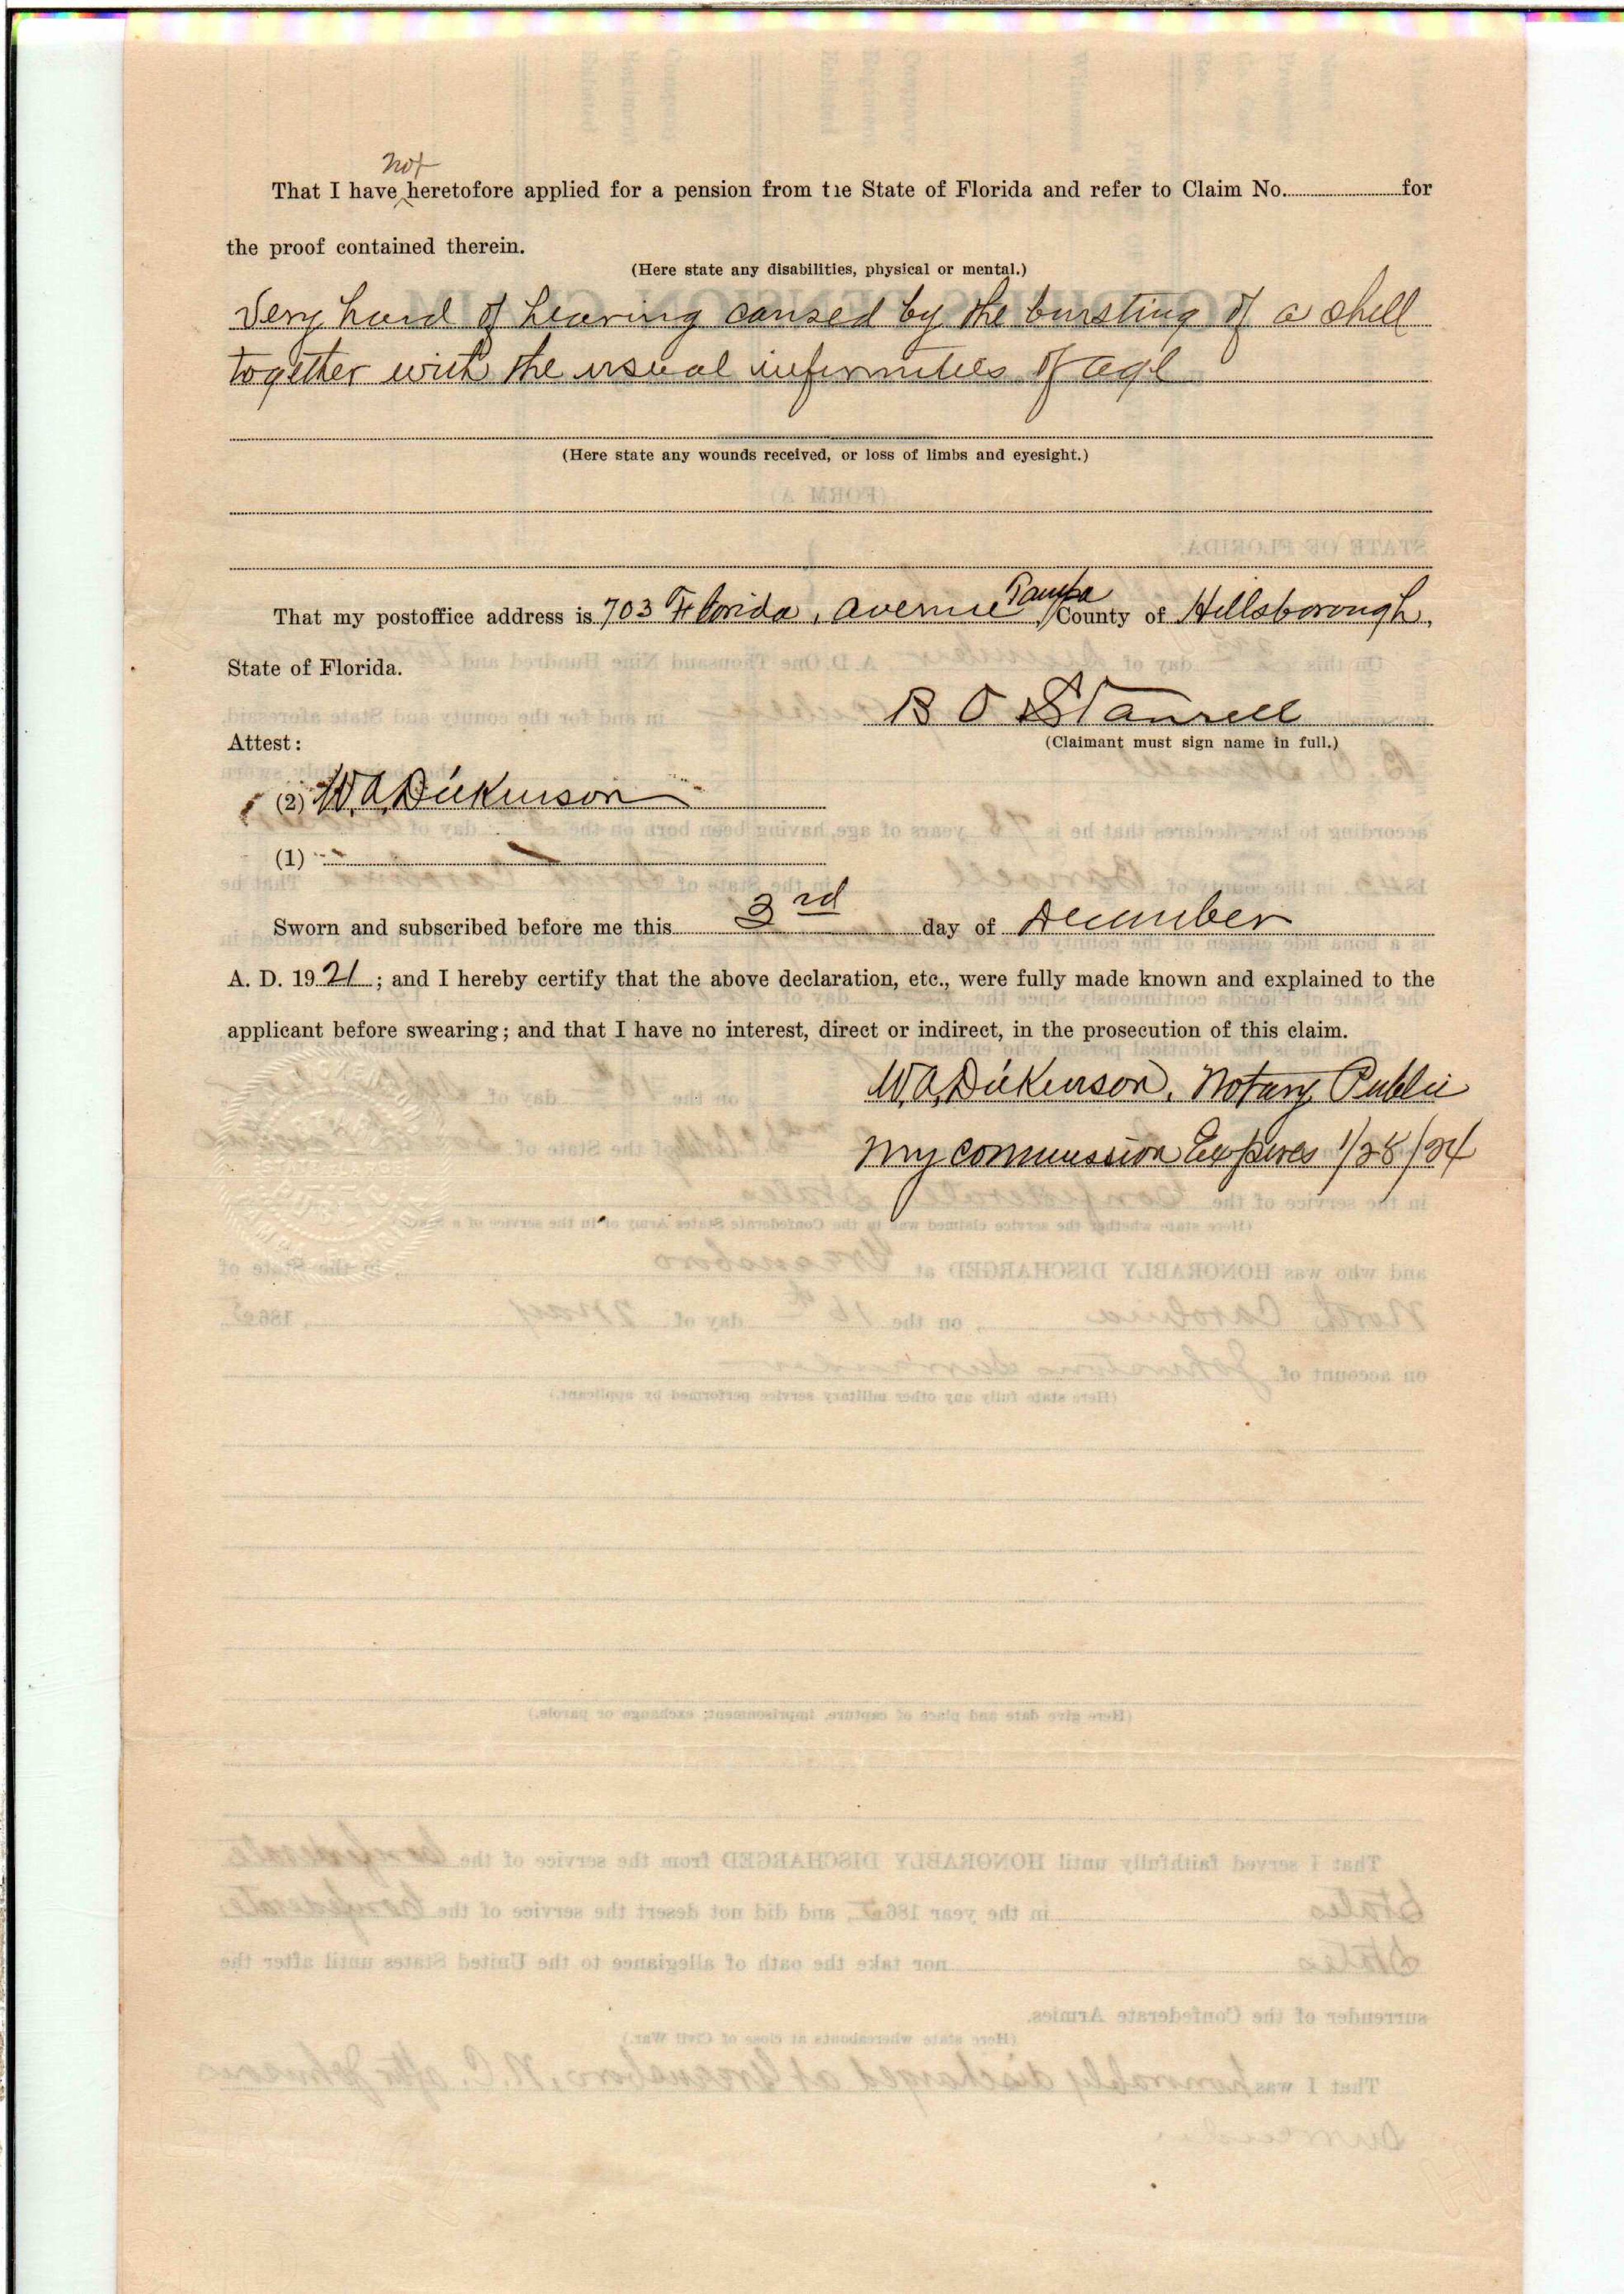 not
That I have heretofore applied for a pension from tıe State of Florida and refer to Claim No. for
the proof contained therein.
(Here state any disabilities, physical or mental.)
Very hard of hearing caused by the bursting of a shell
together with the usual infirmities of age
(Here state any wounds received, or loss of limbs and eyesight.)
That my postoffice address is 703 Florida, avenue Tampa County of Hillsborough,
State of Florida.
B O Stansell
Attest: (Claimant must sign name in full.)
(2) W.A. Dickenson
(1)
Sworn and subscribed before me this 3rd day of December
A. D. 1921; and I hereby certify that the above declaration, etc., were fully made known and explained to the
applicant before swearing; and that I have no interest, direct or indirect, in the prosecution of this claim.
W.A. Dickenson, Notary Public
My commission Expires 1/28/24